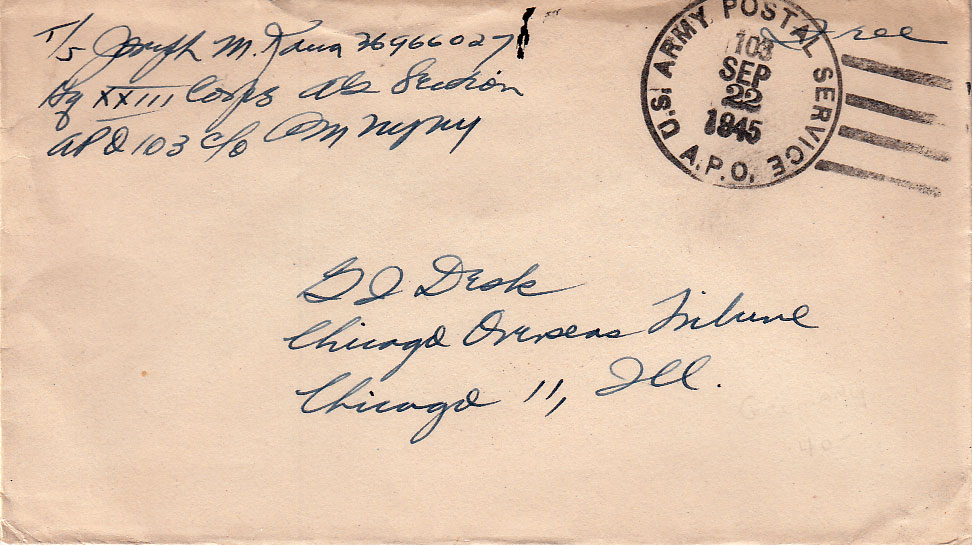 T/5 Joseph M. 36966027
Hq XXIII Corps AG Section
APO 103 c/o PM NY NY
Free
U.S. ARMY POSTAL SERVICE
A.P.O.
103
SEP
22
1945
G I Desk
Chicago Overseas Tribune
Chicago 11, Ill.